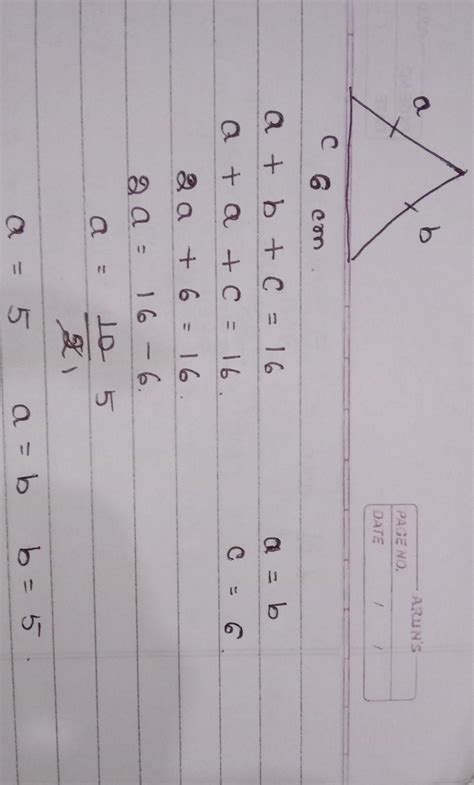 ARUN'S
PAGE NO.
DATE / /
a b
c 6 cm.
a + b + c = 16 a = b
a + a + c = 16. c = 6.
2a + 6 = 16.
2a = 16 - 6.
a = 10 5
2 1
a = 5 a = b b = 5.